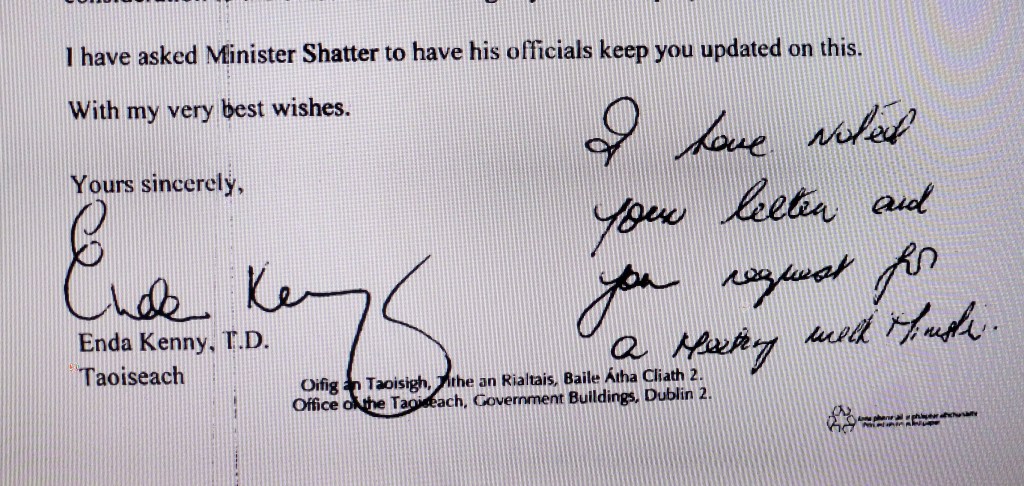 I have asked Minister Shatter to have his officials keep you updated on this.
With my very best wishes.
I have noted
your letter and
your request for
a meeting with Minister.
Yours sincerely,
Enda Kenny
Enda Kenny, T.D.
Taoiseach
Oifig an Taoisigh, Tithe an Rialtais, Baile Átha Cliath 2.
Office of the Taoiseach, Government Buildings, Dublin 2.